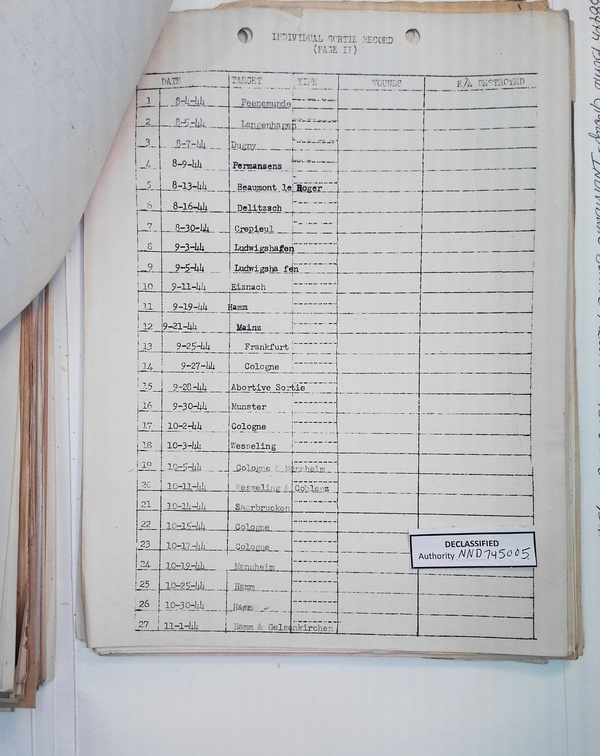 INDIVIDUAL SORTIE RECORD
(PAGE II)
DATE TARGET TIME WOUNDS E/A DESTROYED
1 8-4-44 Peenemunde
2 8-5-44 Langenhagen
3 8-7-44 Dugny
4 8-9-44 Permansens
5 8-13-44 Beaumont le Roger
6 8-16-44 Delitzsch
7 8-30-44 Crepieul
8 9-3-44 Ludwigshafen
9 9-5-44 Ludwigsha fen
10 9-11-44 Eisnach
11 9-19-44 Hamm
12 9-21-44 Mainz
13 9-25-44 Frankfurt
14 9-27-44 Cologne
15 9-28-44 Abortive Sortie
16 9-30-44 Munster
17 10-2-44 Cologne
18 10-3-44 Wesseling
19 10-5-44 Cologne & Mannheim
20 10-11-44 Wesseling & Coblenz
21 10-14-44 Saarbrucken
22 10-15-44 Cologne
23 10-17-44 Cologne
24 10-19-44 Mannheim
25 10-25-44 Hamm
26 10-30-44 Hamm
27 11-1-44 Hamm & Gelsenkirchen
DECLASSIFIED
Authority NND745005